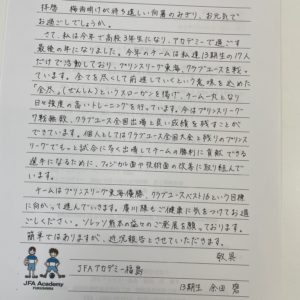 拝啓 梅雨明けが待ち遠しい向暑のみぎり、お元気で
お過ごしでしょうか。
さて、私は今年で高校3年生になり、アカデミーで過ごす
最後の年になりました。今年のチームは私達13期生の17人
だけで活動しており、プリンスリーグ東海、クラブユースを戦っ
ています。全てを尽くして前進していくという意味を込めた
「全尽」(ぜんしん)というスローガンを掲げ、チーム一丸となり
日々強度の高いトレーニングを行っています。今はプリンスリーグ
7戦無敗、クラブユース全国出場と良い成績を残すことが
できています。個人としてはクラブユース全国大会と残りのプリンス
リーグでもっと試合に多く出場してチームの勝利に貢献できる
選手になるために、フィジカル面や技術面の改善に取り組んで
います。
チームはプリンスリーグ東海優勝、クラブユースベスト16という目標
に向かって進んでいきます。
ご健康に気をつけてお過
ごしください。ソレッソ熊本の益々のご発展を願っております。
簡単ではありますが、近況報告とさせていただきます。
敬具
JFAアカデミー福島
13期生 余田
JFA Academy
FUKUSHIMA